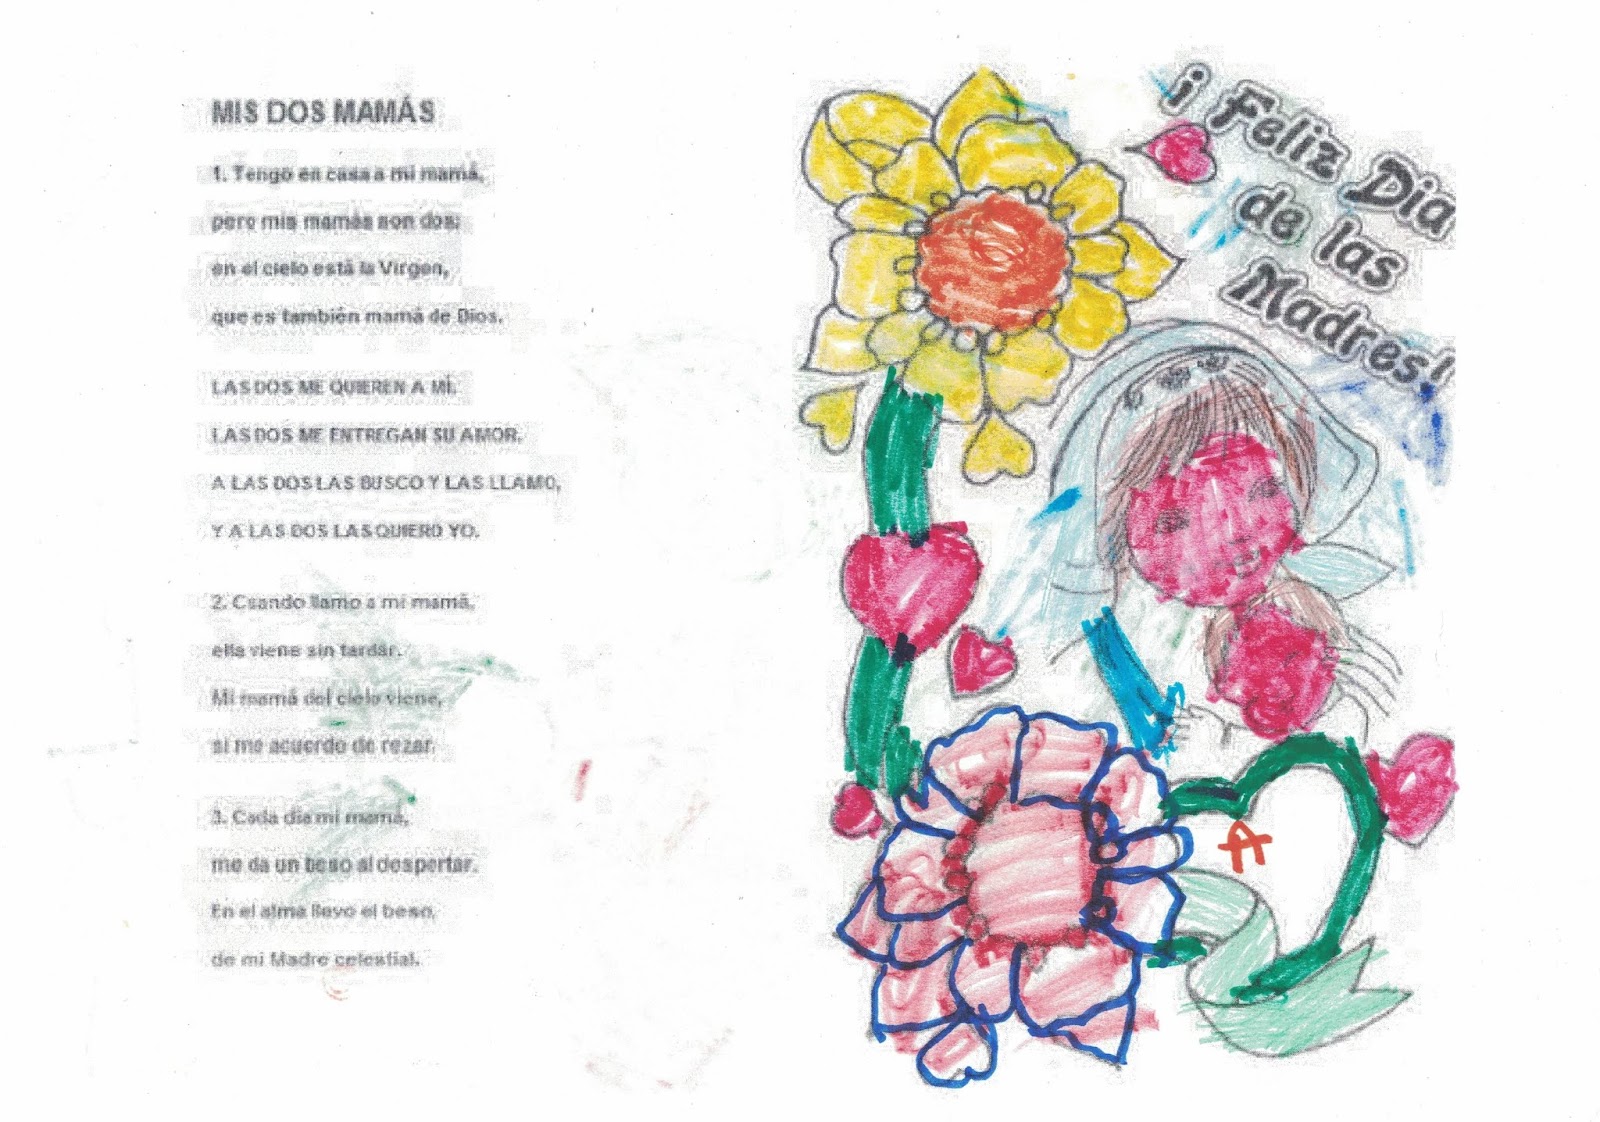 MIS DOS MAMÁS
1. Tengo en casa a mi mamá,
pero mis mamás son dos;
en el cielo está la Virgen,
que es también mamá de Dios.
LAS DOS ME QUIEREN A MÍ.
LAS DOS ME ENTREGAN SU AMOR.
A LAS DOS LAS BUSCO Y LAS LLAMO,
Y A LAS DOS LAS QUIERO YO.
2. Cuando llamo a mi mamá,
ella viene sin tardar.
Mi mamá del cielo viene,
si me acuerdo de rezar.
3. Cada día mi mamá,
me da un beso al despertar.
En el alma llevo el beso,
de mi Madre celestial.
¡ Feliz Dia
de las
Madres!
A